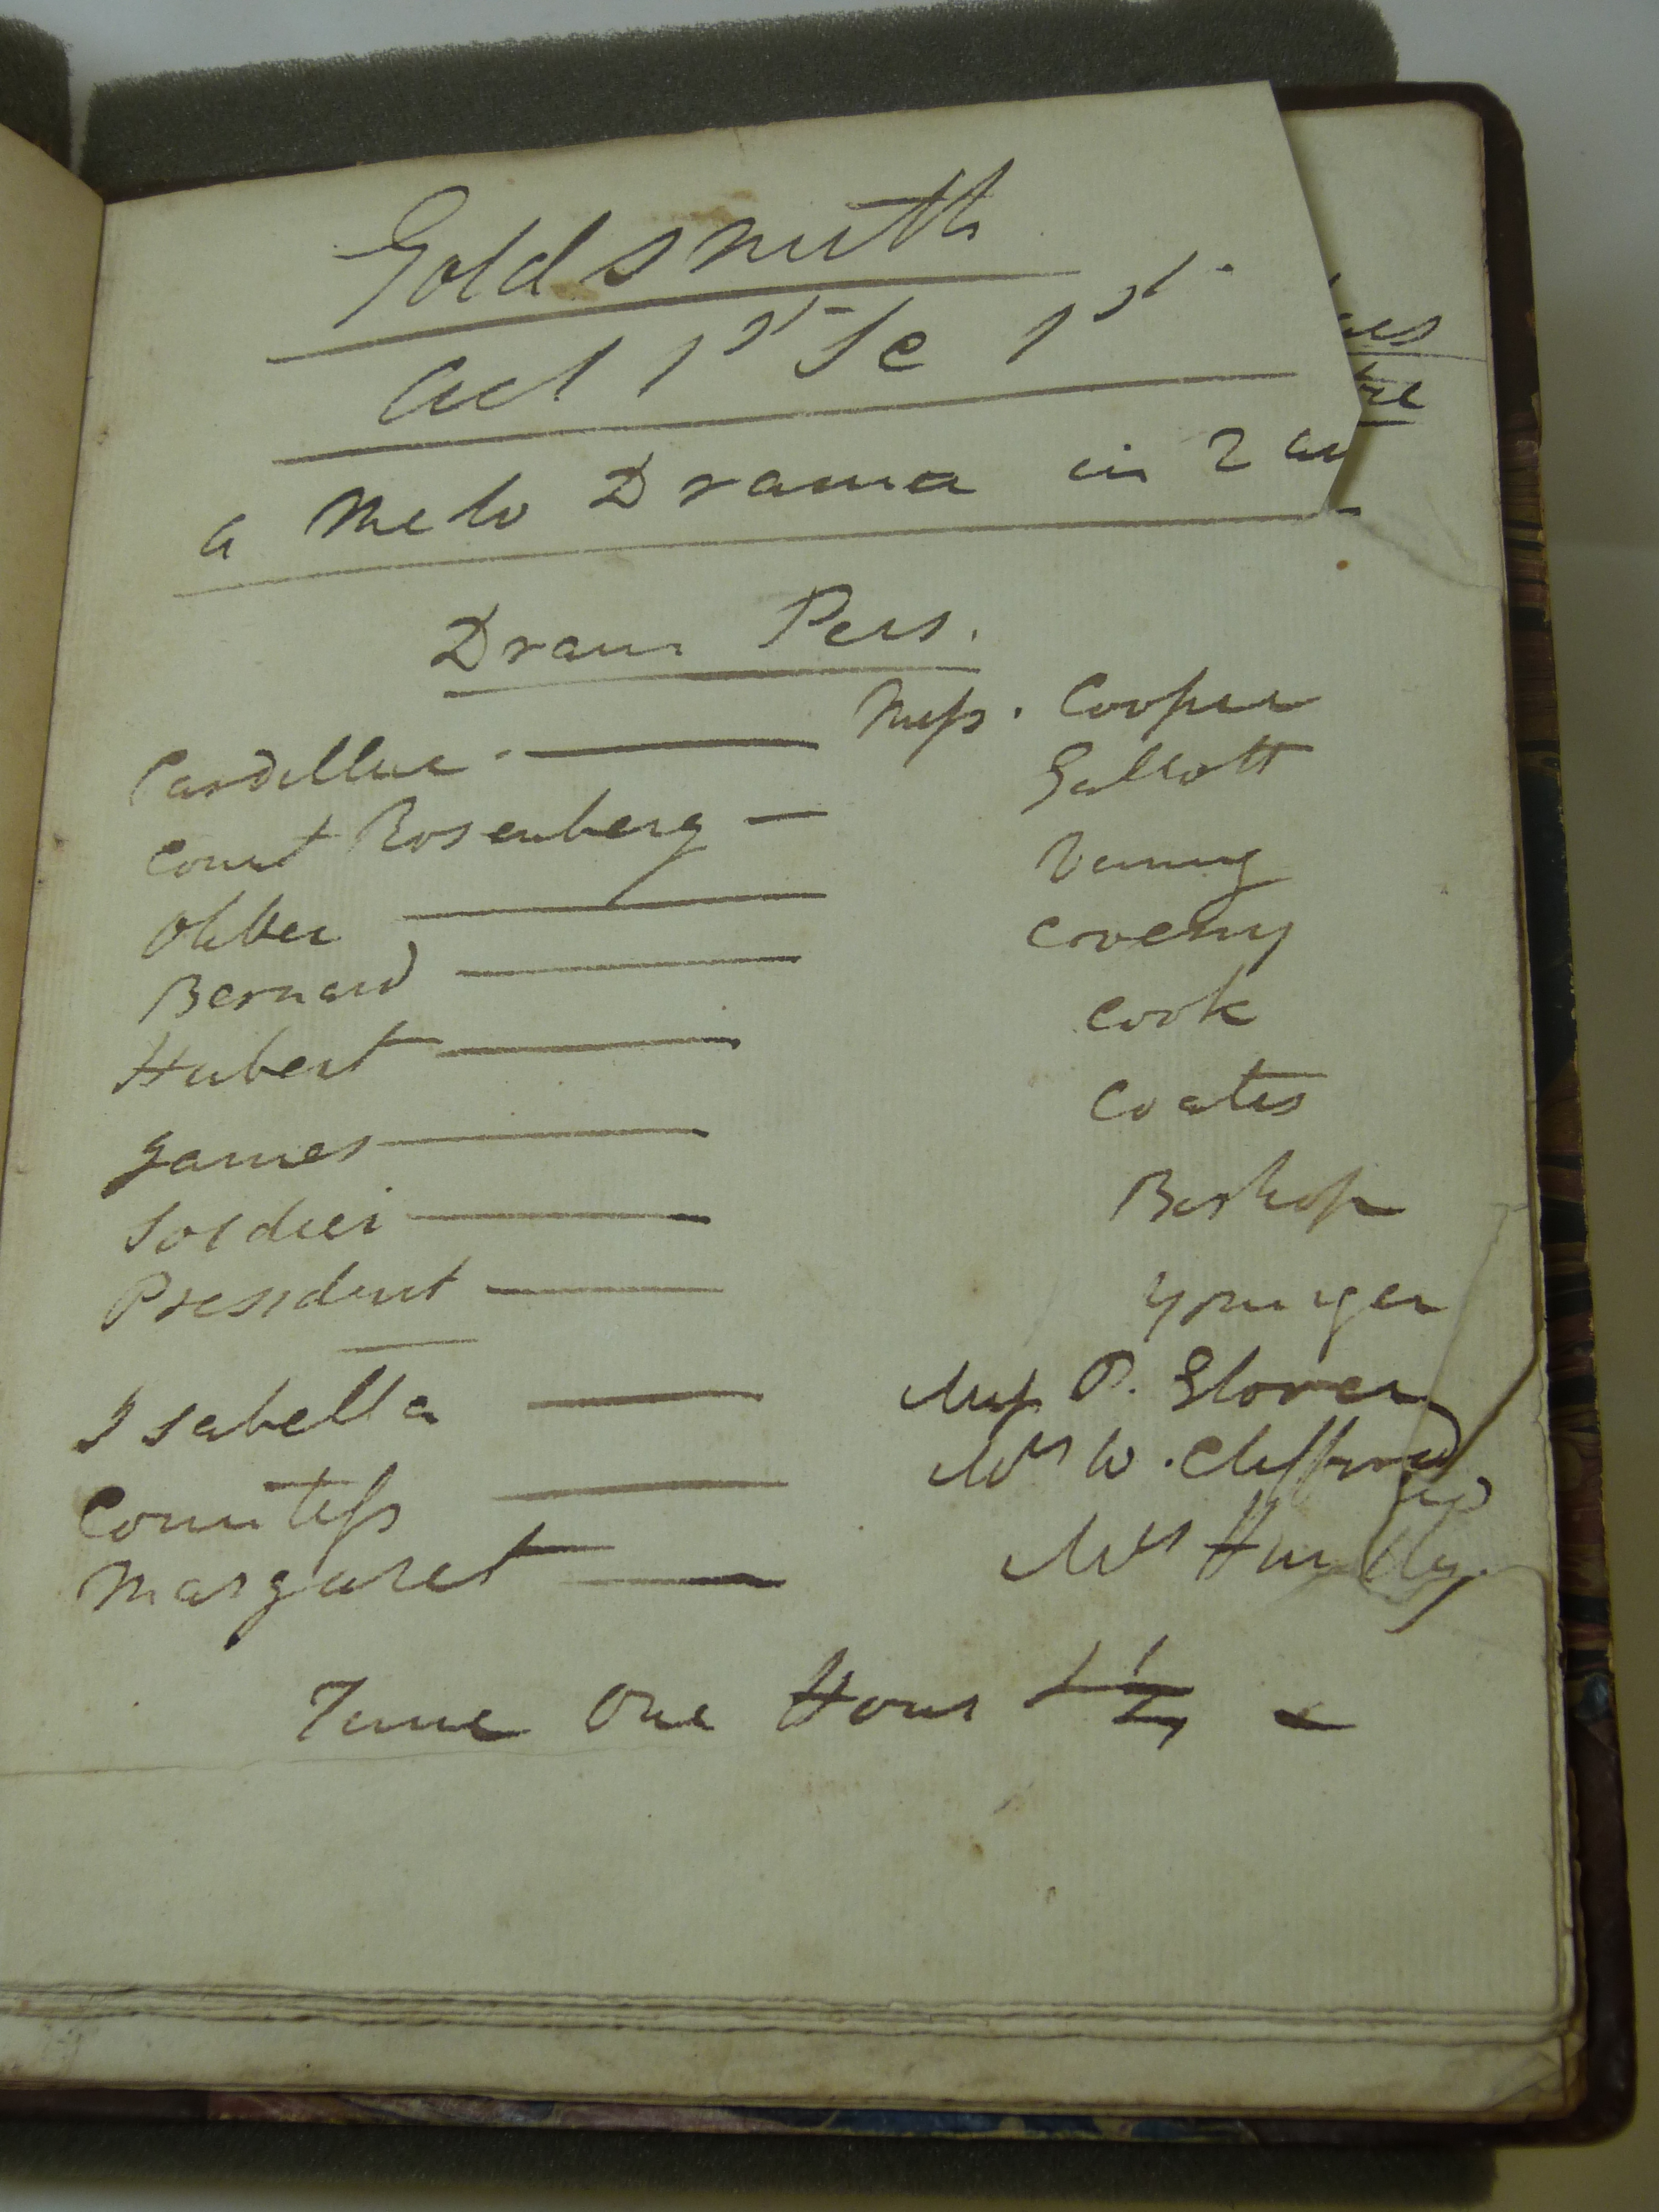 Goldsmith
Act 1st Sc 1st
a Melo Drama in 2 ac
Dram Pers.
Cardillac Mess. Cooper
Count Rosenberg Gallott
Oliver Vining
Bernard Coveny
Hubert Cook
James Coates
Soldier Bishop
President Younger
Isabella Miss P. Glover
Countess Mrs W. Clifford
Margaret Mrs
Time One Hour